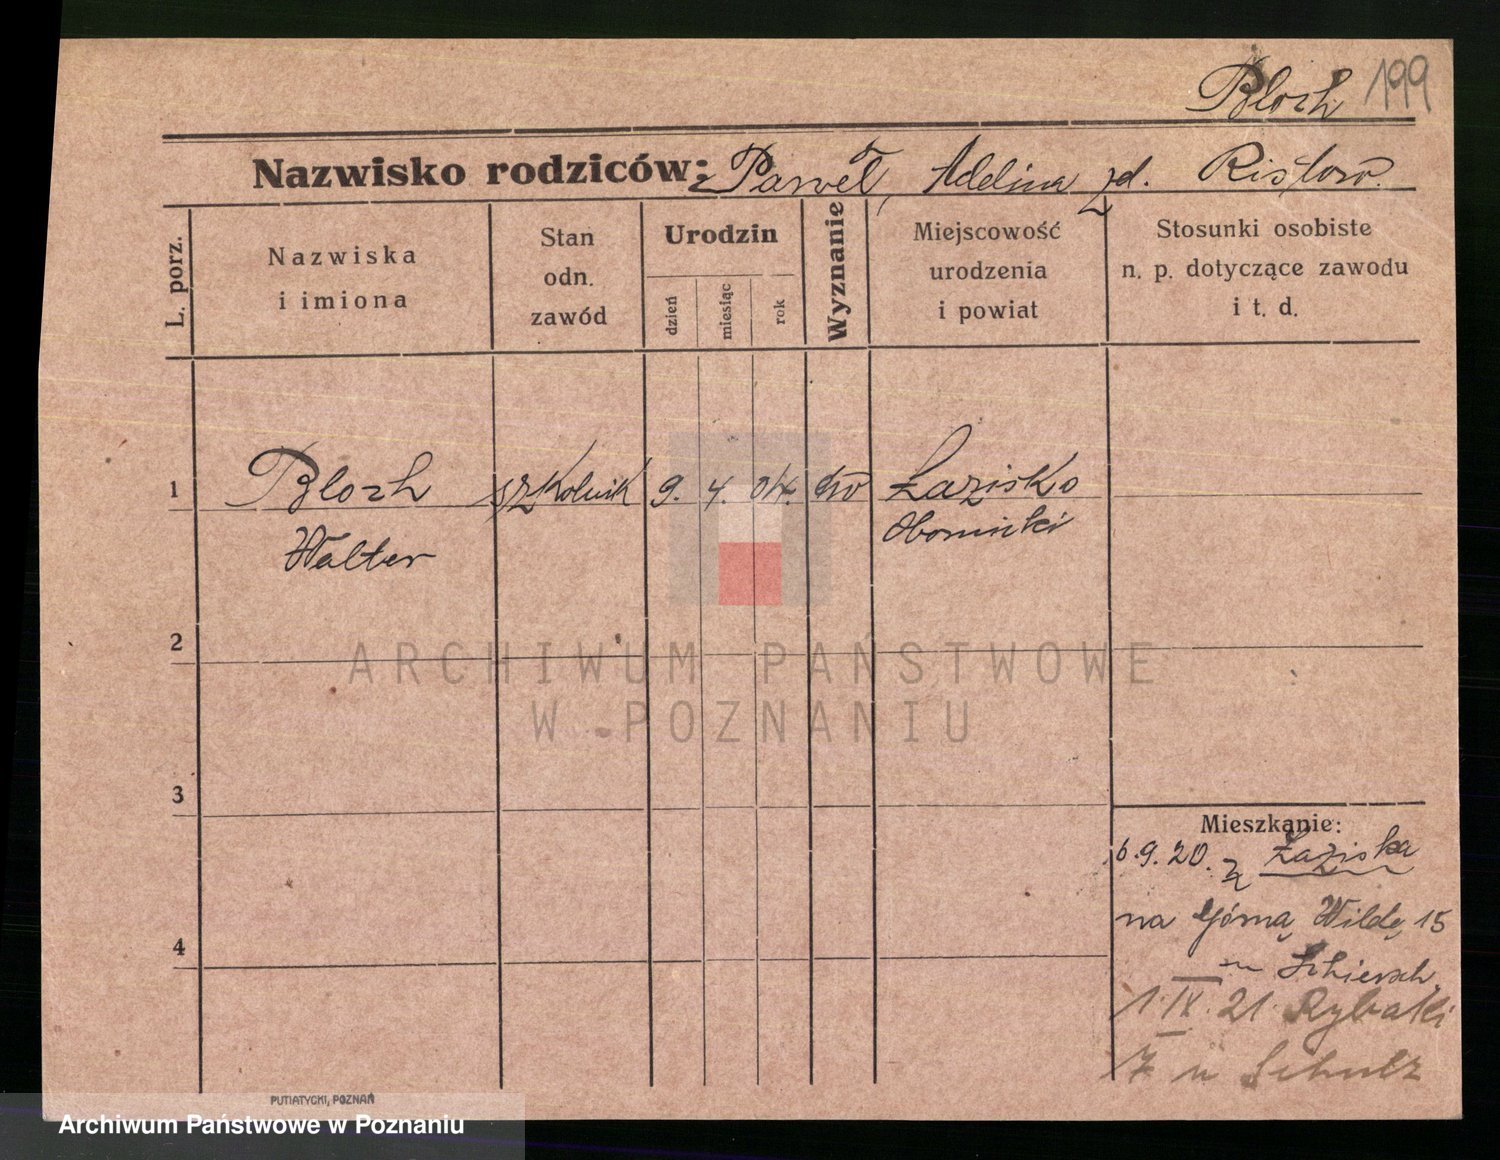 Bloch 199
Nazwisko rodziców: Paweł, Adelina zd. Ristow.
L. porz.
Nazwiska
i imiona
Stan
odn.
zawód
Urodzin
dzień
miesiąc
rok
Wyznanie
Miejscowość
urodzenia
i powiat
Stosunki osobiste
n. p. dotyczące zawodu
i t. d.
1 Bloch szkolnik 9. 4. 04. Łazisko
Walter Obornicki
2
3
4
Mieszkanie:
6.9.20. z Łaziska
na Górną Wildę 15
Schiersch
1.IX.21. Rybaki
7 u Schulz
PUTIATYCKI, POZNAŃ
ARCHIWUM PAŃSTWOWE
W POZNANIU
Archiwum Państwowe w Poznaniu